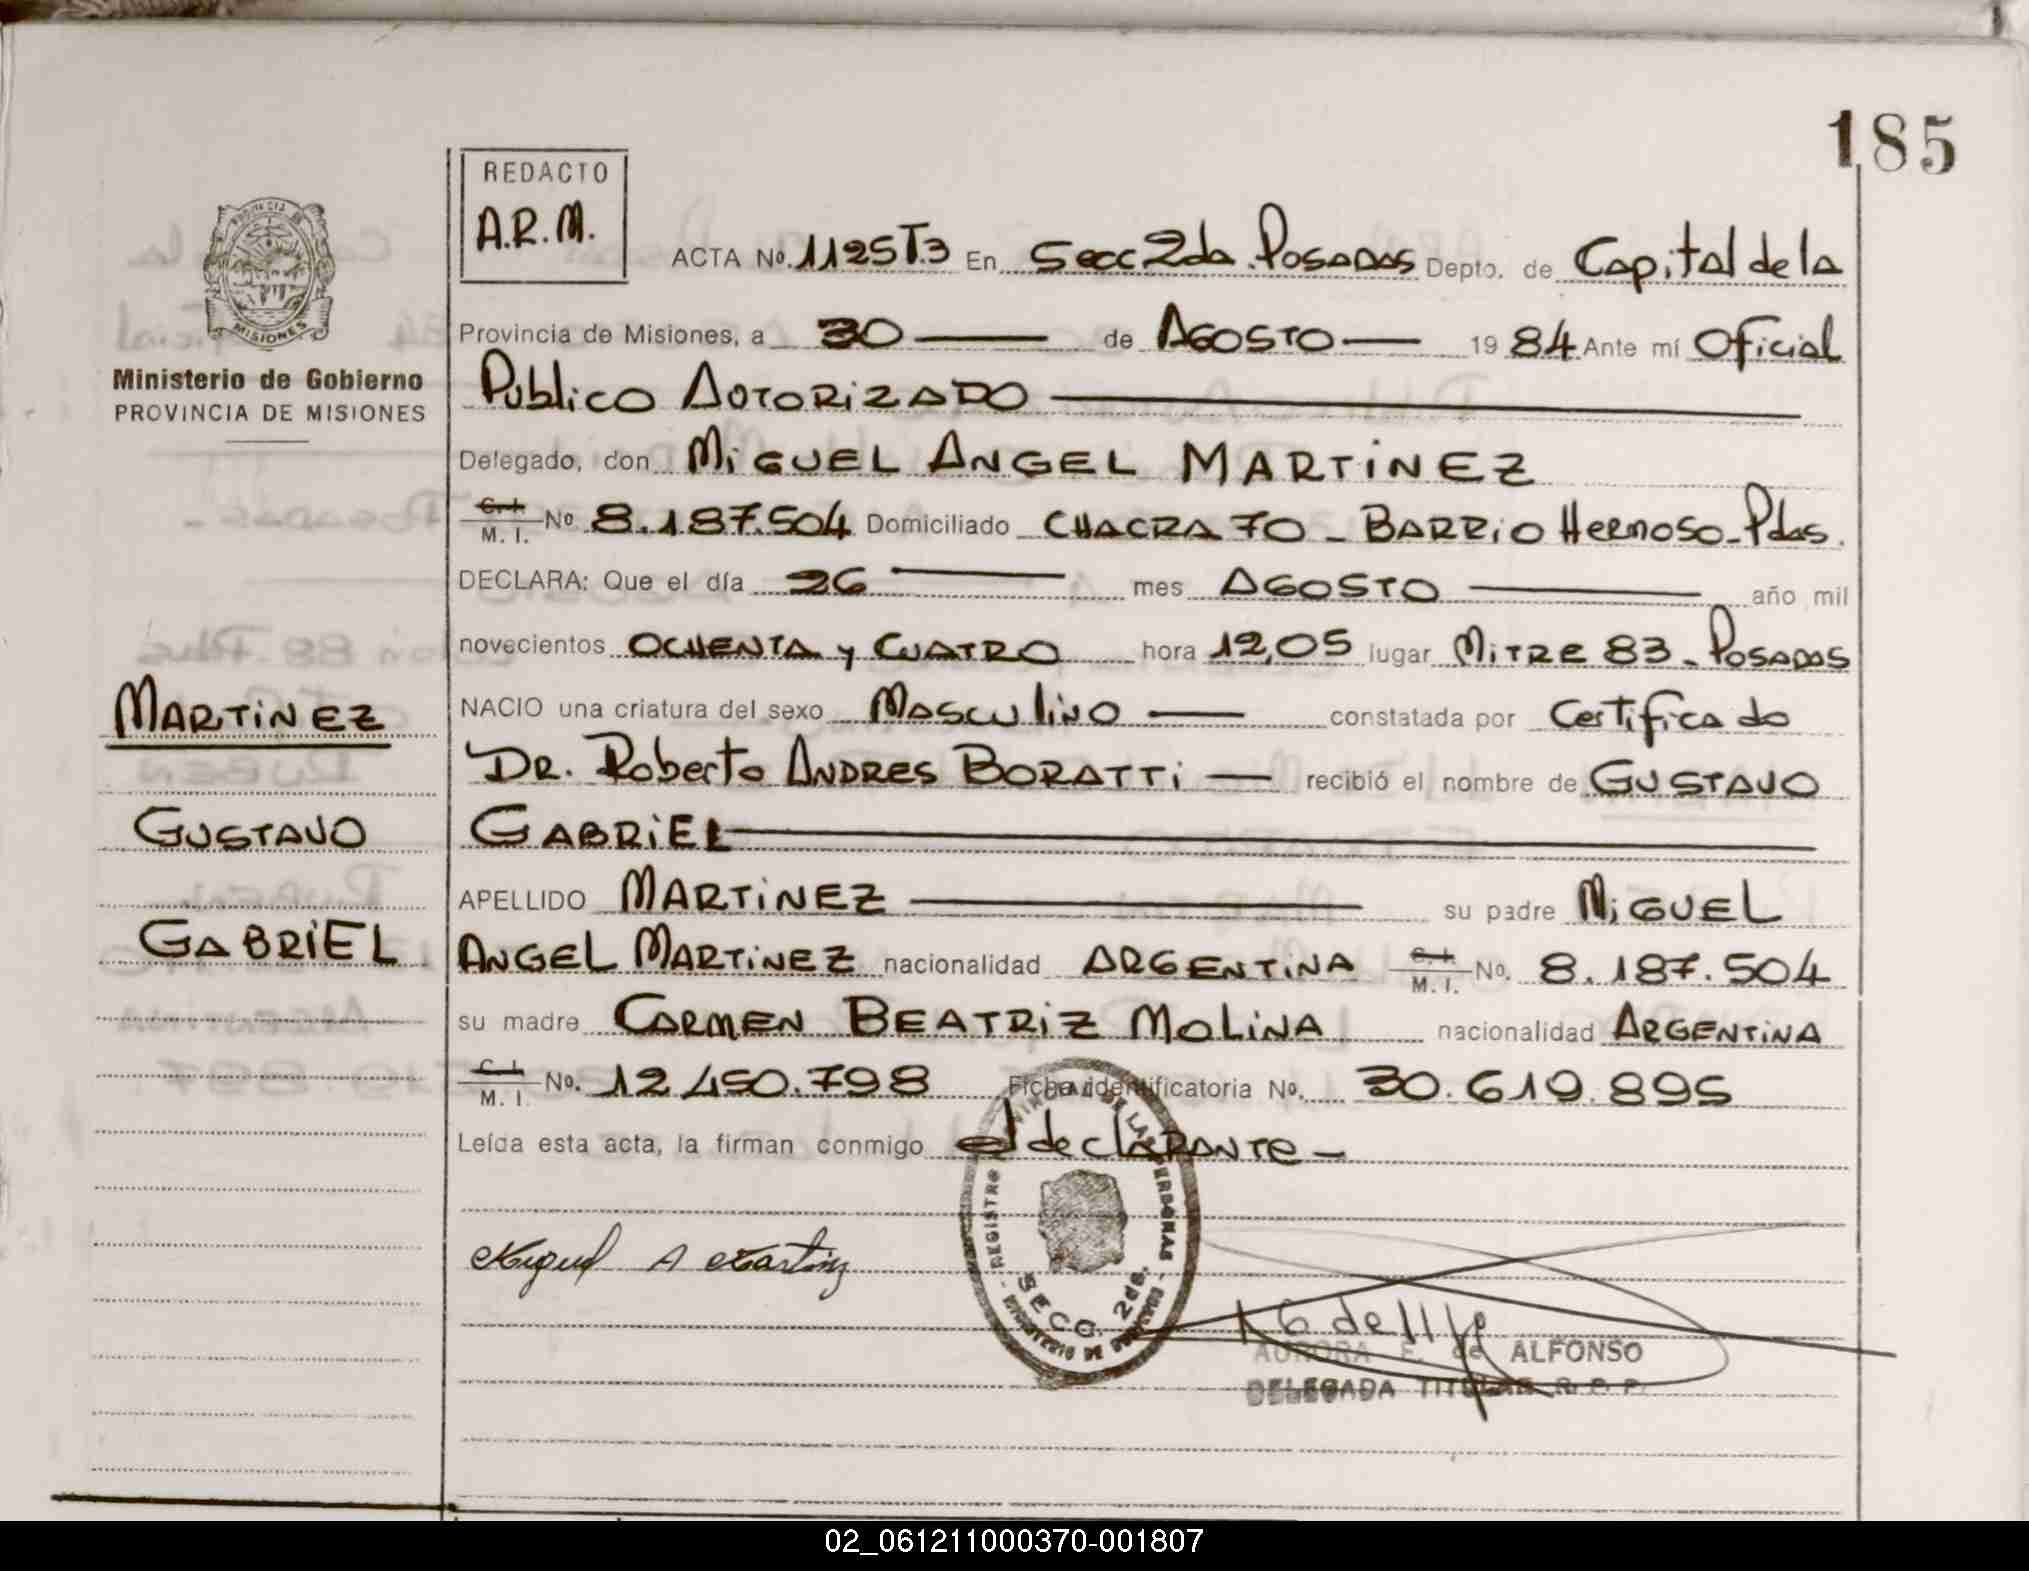 185
REDACTO
A.R.M.
PROVINCIA DE
MISIONES
Ministerio de Gobierno
PROVINCIA DE MISIONES
ACTA Nº. 1125T.3 En Secc 2da. Posadas Depto. de Capital de la
Provincia de Misiones, a 30 de AGOSTO 19 84 Ante mí Oficial
Público AUTORIZADO
Delegado, don MiGUEL ANGEL MARTiNEZ
C. I. M. I. Nº 8.187.504 Domiciliado CHACRA 70 - BARRiO Hermoso - Pdas.
DECLARA: Que el día 26 mes AGOSTO año mil
novecientos OCHENTA y CUATRO hora 12,05 lugar MiTRE 83 - POSADAS
NACIO una criatura del sexo MASCUliNO constatada por Certificado
DR. Roberto ANDRES BORATTi recibió el nombre de GUSTAVO
GABRiEL
APELLIDO MARTiNEZ su padre MiGUEL
ANGEL MARTiNEZ nacionalidad ARGENTiNA C. I. M. I. Nº. 8.187.504
su madre CARMEN BEATRiZ MOLiNA nacionalidad ARGENTiNA
C. I. M. I. Nº. 12.450.798 Ficha identificatoria Nº. 30.619.895
Leída esta acta, la firman conmigo el declARANTe -
MARTiNEZ
GUSTAVO
GABRiEL
Miguel A Martinez
REGISTRO PROVINCIAL DE LAS PERSONAS
SECC. 2da.
MINISTERIO DE GOBIERNO
AURORA F. de ALFONSO
DELEGADA TITULAR R. P. P.
02_061211000370-001807